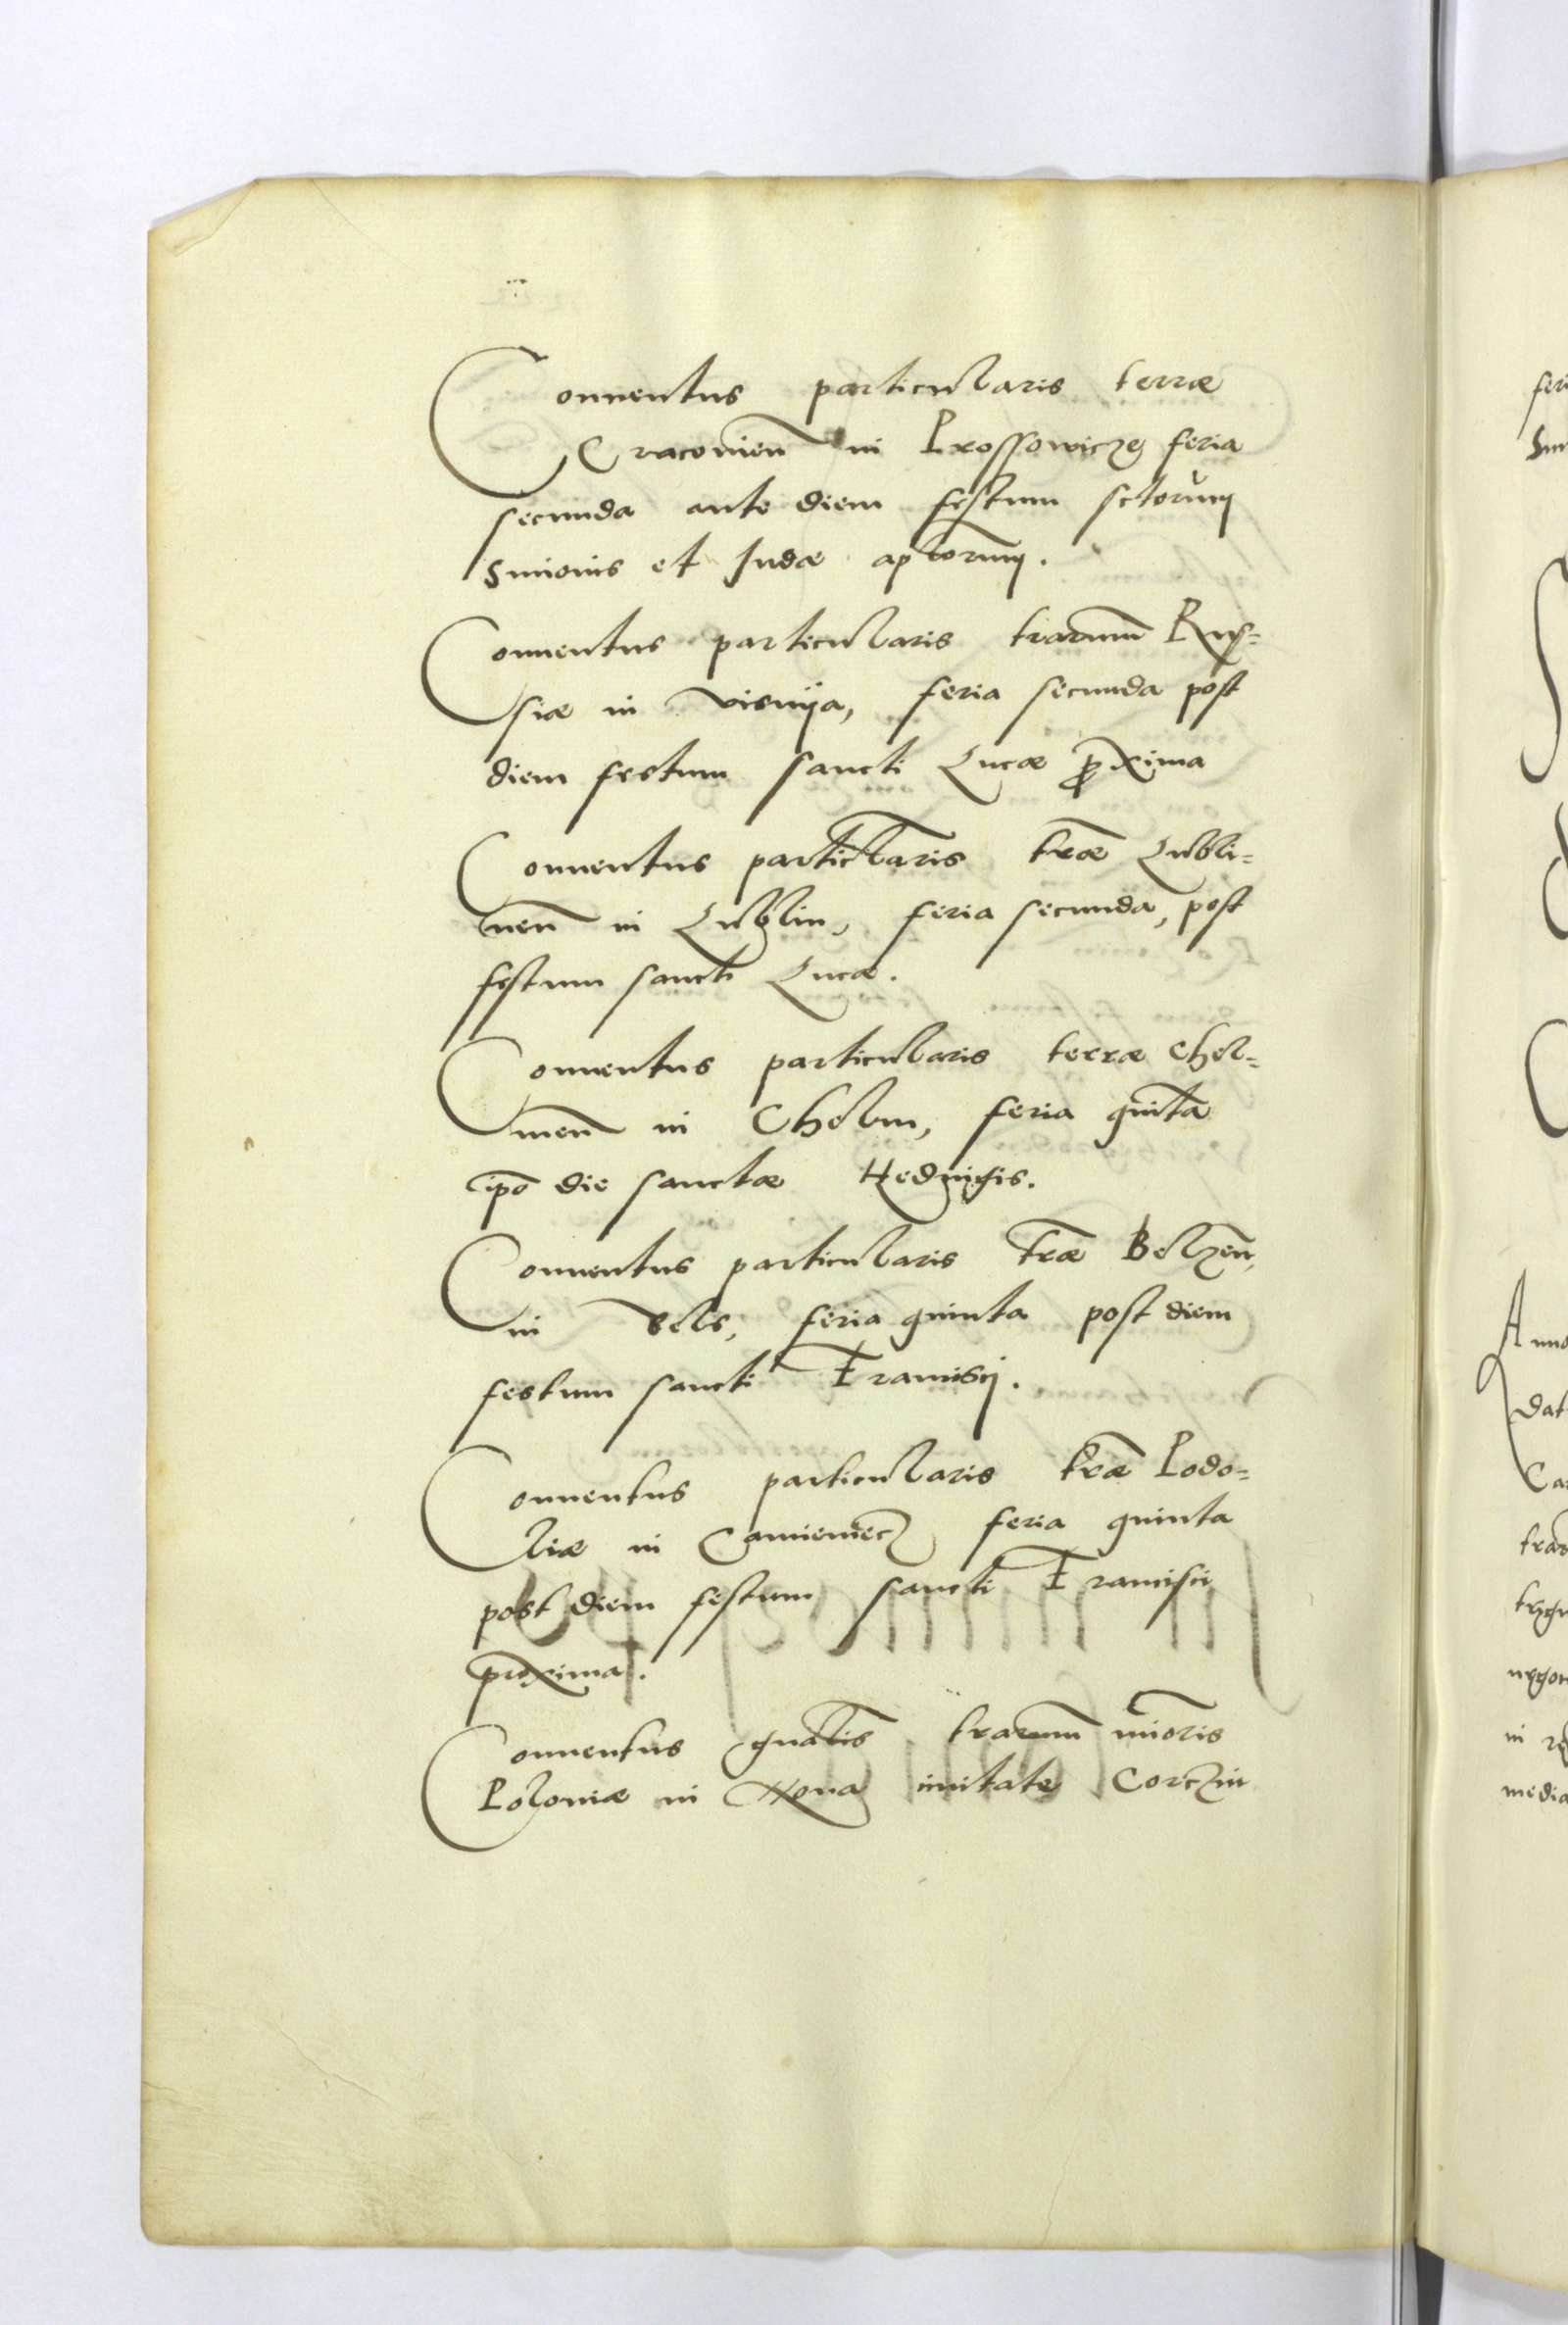 Conuentus particularis terræ
Cracouien̄ in Prossowicze feria
secunda ante diem festum sctorum
Simonis et Judæ apl̄orum.
Conuentus particularis tr̄arum Rus=
siæ in visnija, feria secunda post
diem festum sancti Lucæ proxima
Conuentus partic̄laris tr̄æ Lubli=
nen̄ in Lublin, feria secunda, post
festum sancti Lucæ.
Conuentus particularis terræ Chel=
men̄ in Chelm, feria quinta
ip̄o die sanctæ Heduigis.
Conuentus particularis tr̄æ Belzen̄,
in Belz, feria quinta post diem
festum sancti Francisci.
Conuentus particularis tr̄æ Podo=
liæ in Camieniecz feria quinta
post diem festum sancti Francisci
proxima.
Conuentus gn̄alis tr̄arum mīoris
Poloniæ in Noua ciuitate Corczin
feri
Sim
Anno
dat
Ca
in re
media